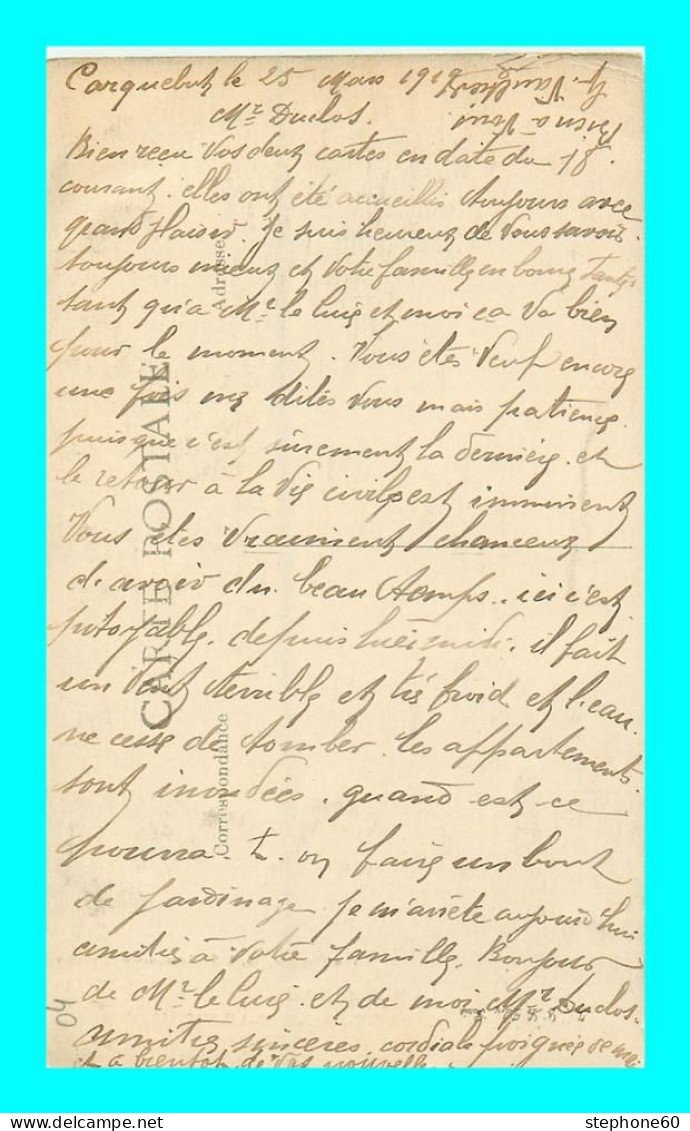 Carquebut le 25 Mars 1919
Mr Duclos.
Bien reçu Vos deux cartes en date du 18
courant. elles ont été accueillis toujours avec
grand plaisir. Je suis heureux de Vous savoir
toujours mieux et Votre famille en bonne santé
tant qu'a Mr le Curé et moi ca Va bien
pour le moment. Vous êtes Veuf encore
une fois me dites Vous mais patience
puisque c'est surement la dernière et
le retour à la Vie civile est imminent
Vous êtes Vraiment chanceux
d'avoir du beau temps. ici c'est
pitoyable. depuis hier midi. il fait
un Vent terrible et très froid et l'eau
ne cesse de tomber. les appartements
sont inondées. quand est-ce
pourra-t-on faire un bout
de jardinage. Je m'arrête aujourd'hui
amitiés à Votre famille. Bonjour
de Mr le Curé et de moi Mr Duclos.
amitiés sincères, cordiale poignée de main
et a bientot de Vos nouvelles
Bien a Vous
CARTE POSTALE
Correspondance
Adresse
04
stephone60